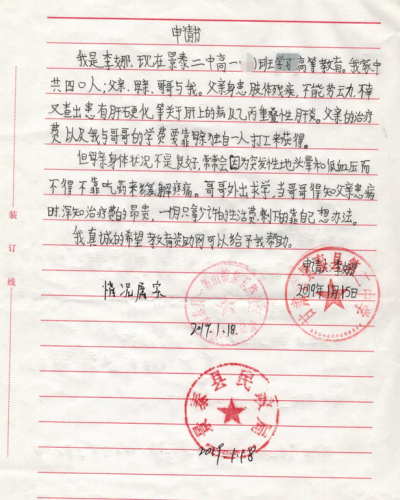 申请书
我是李娜,现在景泰二中高一()班学习高等教育。我家中
共四口人;父亲、母亲、哥哥与我。父亲身患肢体残疾,不能劳动力,不幸
又查出患有肝石硬化等关于肝上的病以及乙丙重叠性肝炎。父亲的治疗
费以及我与哥哥的学费要靠母亲独自一人打工来获得。
但母亲身体状况不是良好,常常会因为突发性止地头晕和低血压而
不得不靠吃药来缓解疼痛。哥哥外出求学,当哥哥得知父亲患病
时,深知治疗费的昂贵,一月只拿少许的生活费,剩下的靠自己想办法。
我真诚的希望教育资助网可以给予我帮助。
申请人:李娜
2019年1月15日
情况属实
2019.1.18.
景泰县民政局
2019.1.18
装订线